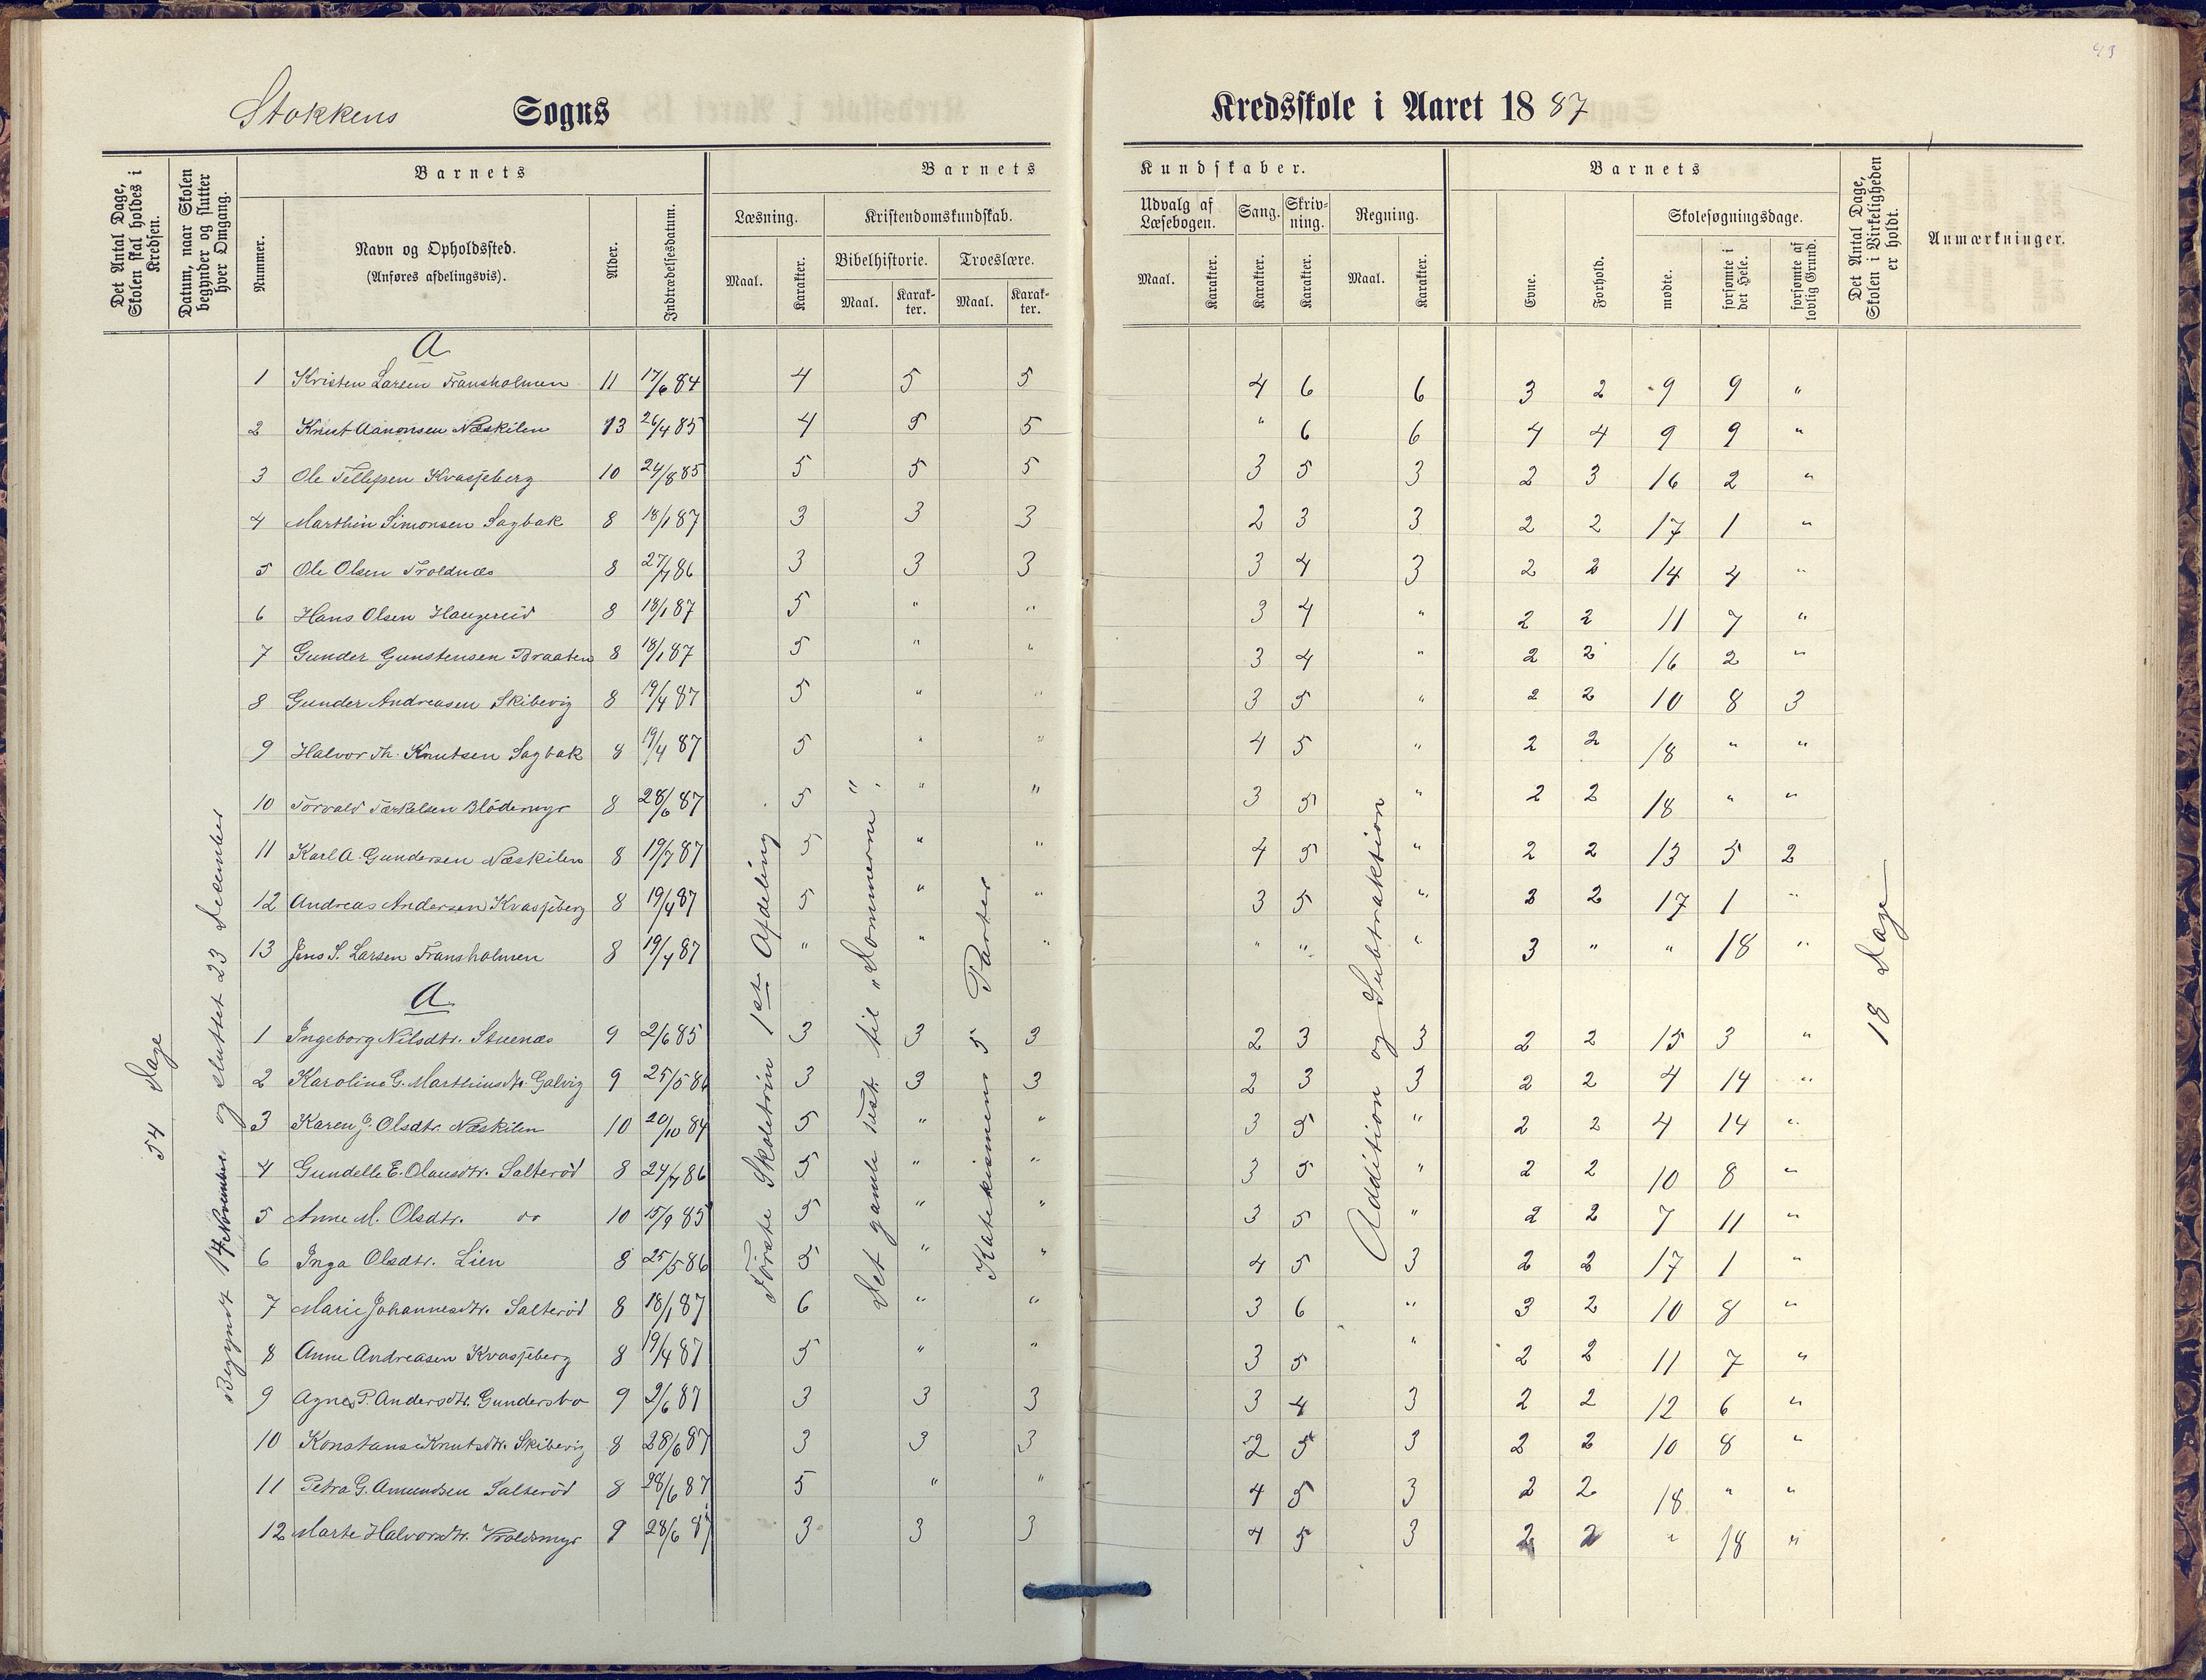 43
Stokkens Sogns Kredsskole i Aaret 1887
Det Antal Dage, Skolen skal holdes i Kredsen.
Datum, naar Skolen begynder og slutter hver Omgang.
Barnets
Nummer.
Navn og Opholdssted.
(Anføres afdelingsvis).
Alder.
Indtrædelsesdatum.
Barnets Kundskaber.
Læsning.
Maal. Karakter.
Kristendomskundskab.
Bibelhistorie. Troeslære.
Maal. Karakter. Maal. Karakter.
Udvalg af Læsebogen.
Maal. Karakter.
Sang. Karakter.
Skrivning. Karakter.
Regning.
Maal. Karakter.
Barnets
Evne. Forhold.
Skolesøgningsdage.
mødte. forsømte i det Hele. forsømte af lovlig Grund.
Det Antal Dage, Skolen i Virkeligheden er holdt.
Anmærkninger.
54 Dage
Begyndt 14 November og sluttet 23 December
Første Skoletrin 1ste Afdeling
Det gamle Test. til „Dommerne".
Katekismens 5 Parter
Addition og Subtraktion
18 Dage
A
1 Kristen Larsen Fransholmen 11 17/6 84 4 5 5 4 6 6 3 2 9 9 "
2 Knut Aanonsen Næskilen 13 26/4 85 4 5 5 " 6 6 4 4 9 9 "
3 Ole Tellefsen Kvasfjeberg 10 24/8 85 5 5 5 3 5 3 2 3 16 2 "
4 Marthin Simonsen Sagbak 8 18/1 87 3 3 3 2 3 3 2 2 17 1 "
5 Ole Olsen Troldnæs 8 27/7 86 3 3 3 3 4 3 2 2 14 4 "
6 Hans Olsen Haugereid 8 18/1 87 5 " " 3 4 " 2 2 11 7 "
7 Gunder Gunstensen Braaten 8 18/1 87 5 " " 3 4 " 2 2 16 2 "
8 Gunder Andreasen Skibevig 8 19/4 87 5 " " 3 5 " 2 2 10 8 3
9 Halvor Th. Knutsen Sagbak 8 19/4 87 5 " " 4 5 " 2 2 18 " "
10 Torvald Tærkelsen Blødemyr 8 28/6 87 5 " " 3 5 " 2 2 18 " "
11 Karl A. Gundersen Næskilen 8 19/7 87 5 " " 4 5 " 2 2 13 5 2
12 Andreas Andersen Kvasfjeberg 8 19/4 87 5 " " 3 5 " 2 2 17 1 "
13 Jens S. Larsen Fransholmen 8 19/4 87 " " " " " " 3 " " 18 "
A
1 Ingeborg Nilsdtr. Stuenæs 9 2/6 85 3 3 3 2 3 3 2 2 15 3 "
2 Karoline G. Marthinsdtr. Galvig 9 25/5 86 3 3 3 2 3 3 2 2 4 14 "
3 Karen J. Olsdtr. Næskilen 10 20/10 84 5 " " 3 5 " 2 2 4 14 "
4 Gundelle E. Olausdtr. Salterød 8 24/7 86 5 " " 3 5 " 2 2 10 8 "
5 Anne M. Olsdtr. do 10 15/9 85 5 " " 3 5 " 2 2 7 11 "
6 Inga Olsdtr. Lien 8 25/5 86 5 " " 4 5 3 2 2 17 1 "
7 Marie Johannesdtr. Salterød 8 18/1 87 6 " " 3 6 " 3 2 10 8 "
8 Anne Andreasen Kvasfjeberg 8 19/4 87 5 " " 3 5 " 2 2 11 7 "
9 Agnes P. Andersdtr. Gundersbo 9 2/6 87 3 3 3 3 4 3 2 2 12 6 "
10 Konstanse Knutsdtr. Skibevig 8 28/6 87 3 3 3 2 5 3 2 2 10 8 "
11 Petra G. Amundsen Salterød 8 28/6 87 5 " " 4 5 3 2 2 18 " "
12 Marte Halvorsdtr. 9 28/6 87 3 3 3 4 5 3 2 2 " 18 "